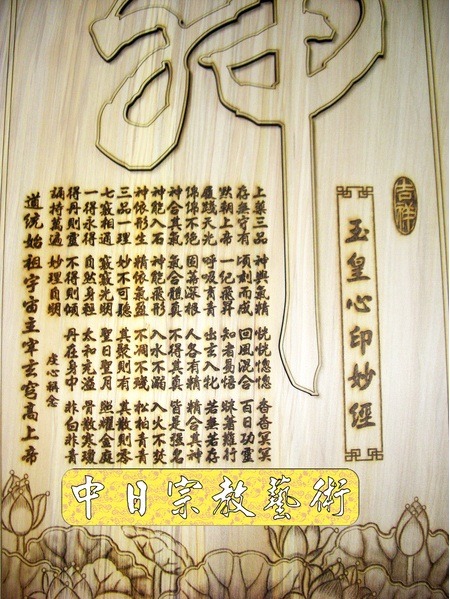 神
吉祥
玉皇心印妙經
上藥三品 神與氣精 恍恍惚惚 杳杳冥冥
存無守有 頃刻而成 回風混合 百日功靈
默朝上帝 一紀飛昇 知者易悟 昧者難行
履踐天光 呼吸育青 出玄入牝 若無若存
綿綿不絕 固蒂深根 人各有精 精合其神
神合其氣 氣合體真 不得其真 皆是強名
神能入石 神能飛形 入水不溺 入火不焚
神依形生 精依氣盈 不凋不殘 松柏青青
三品一理 妙不可聽 其聚則有 其散則零
七竅相通 竅竅光明 聖日聖月 照耀金庭
一得永得 自然身輕 太和充溢 骨散寒瓊
得丹則靈 不得則傾 丹在身中 非白非青
誦持萬遍 妙理自明
虔心稱念
道統始祖宇宙主宰玄穹高上帝
中日宗教藝術